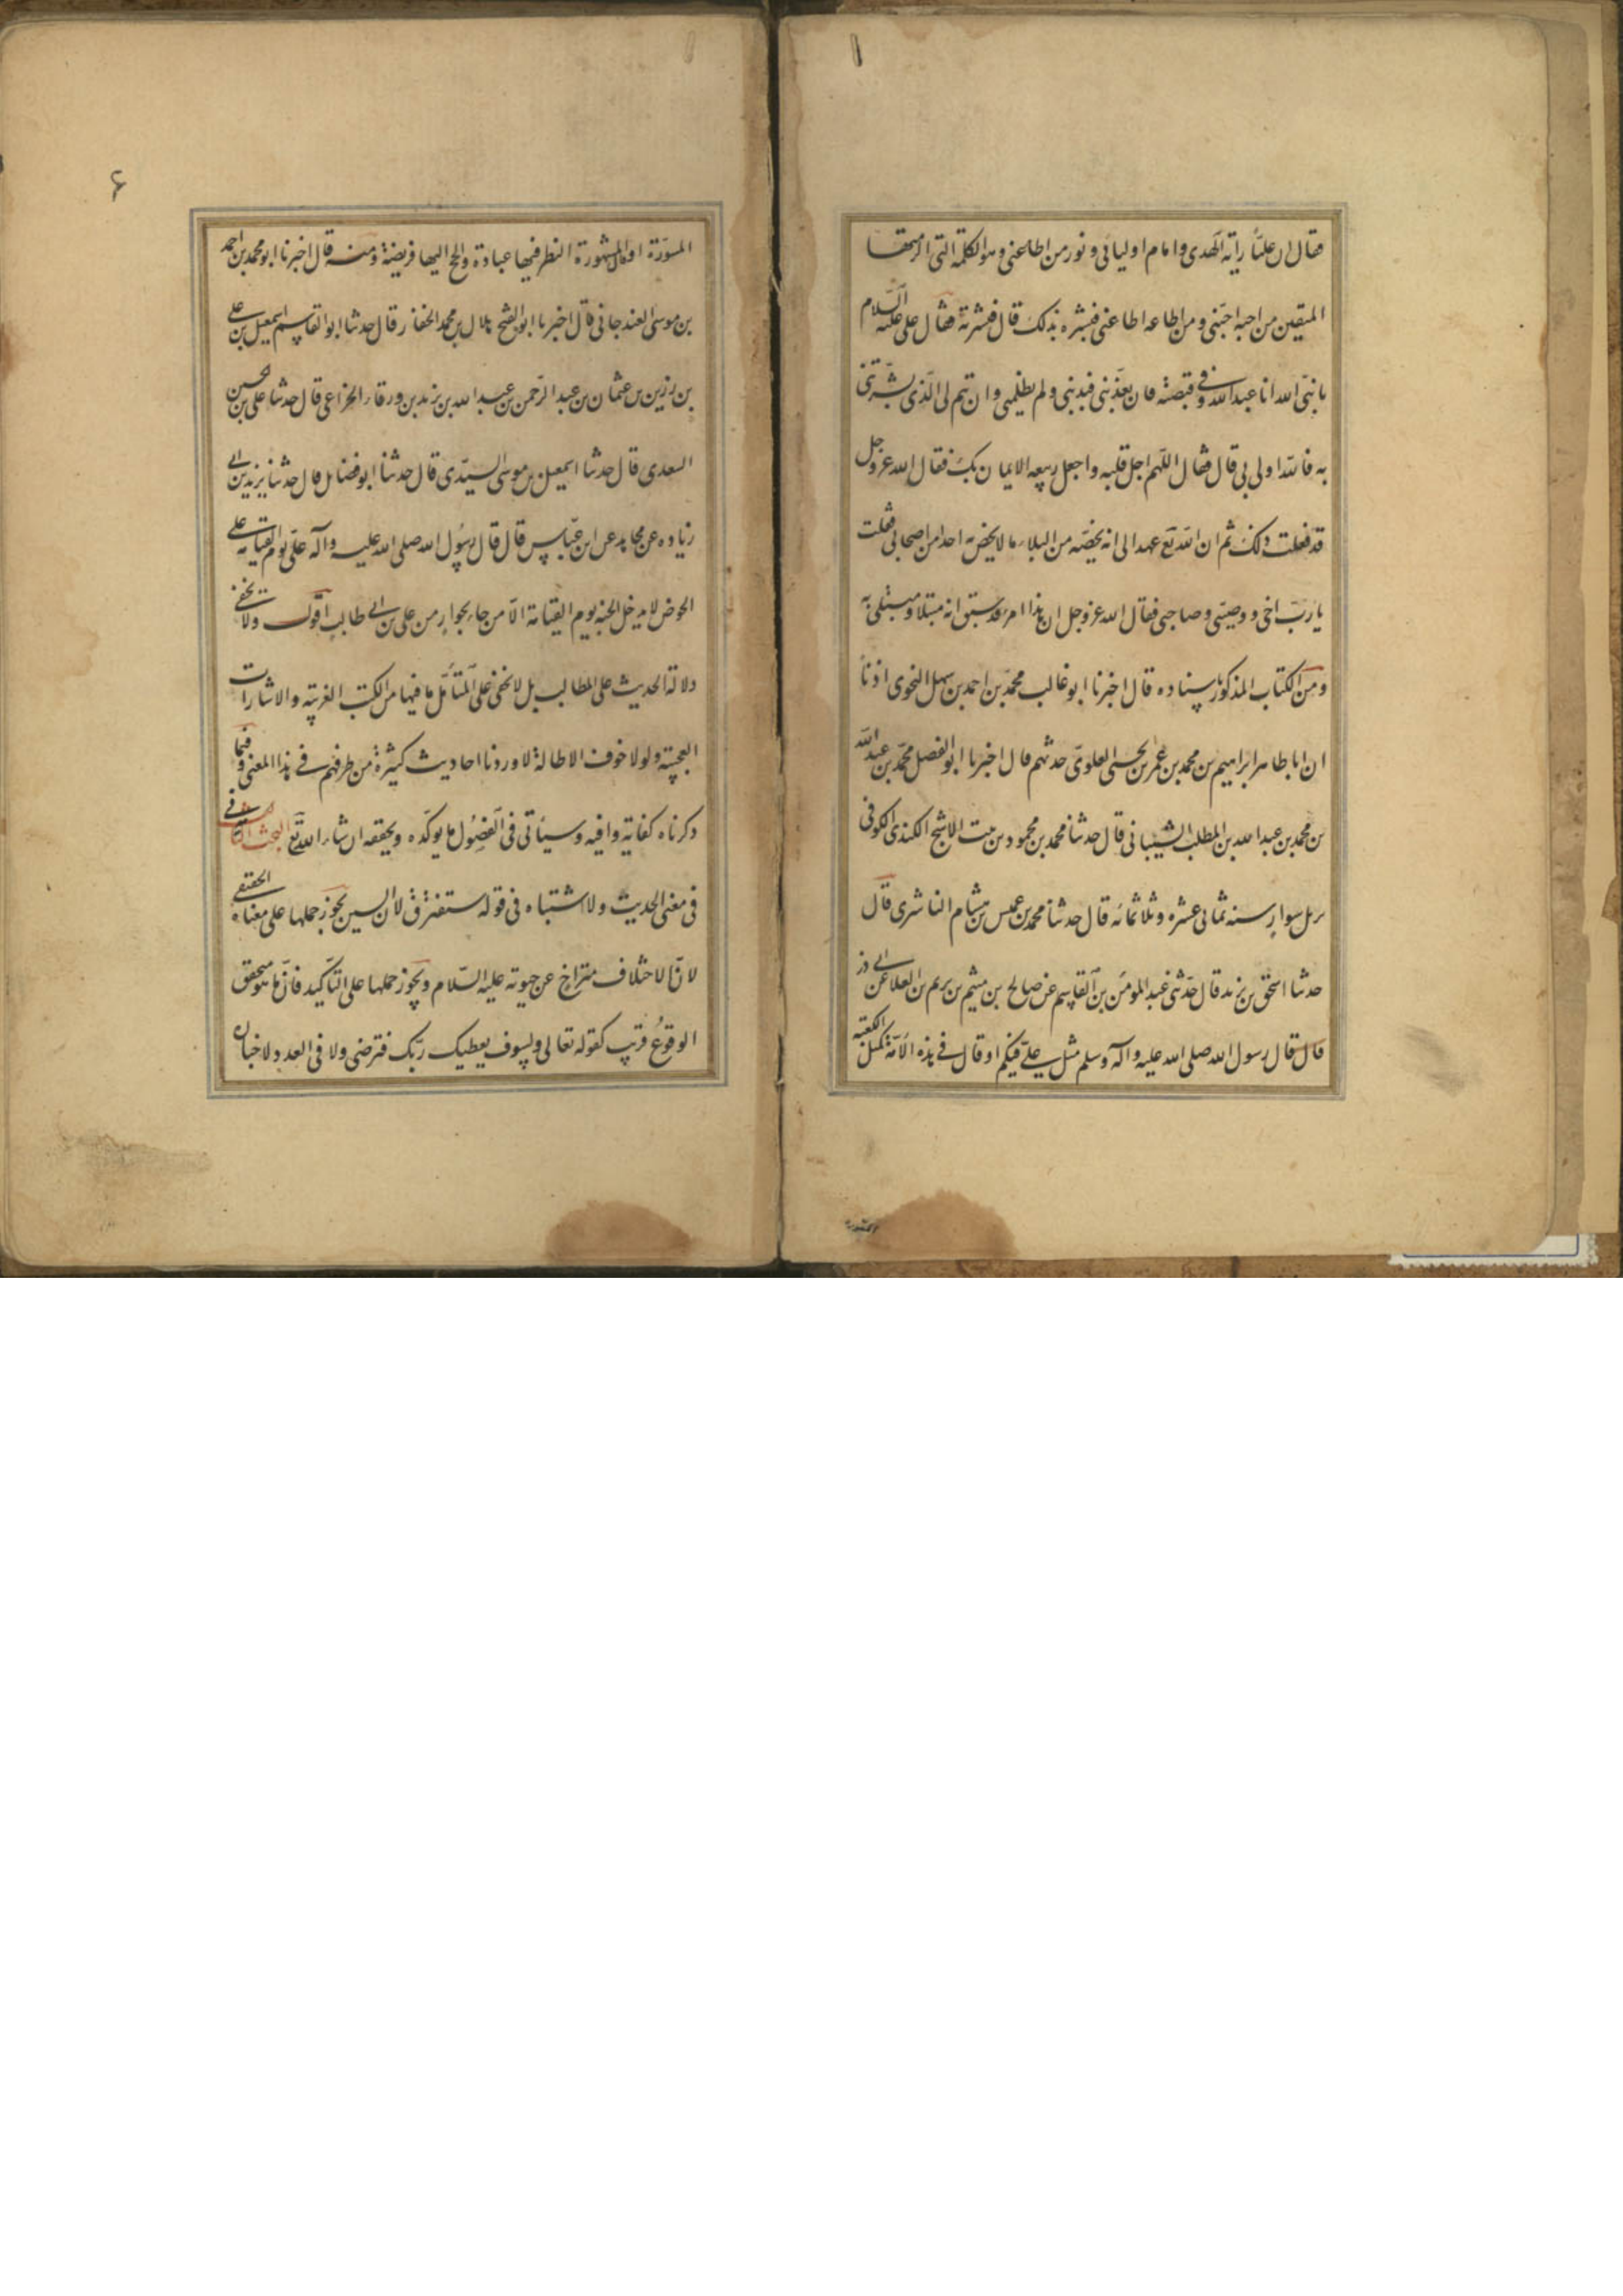 فقال ان عليّاً راية الهدى وامام اوليائي ونور من اطاعني وهو الكلمة التي الزمتها
المتقين من احبه احبّني ومن اطاعه اطاعني فبشره بذلك قال فبشرته فقال علي عليه السّلام
يا نبيّ الله انا عبد الله وفي قبضته فان يعذّبني فبذنبي ولم يظلمني وان يتم لي الّذي بشّرتني
به فالله اولى بي قال فقال اللّهم اجل قلبه واجعل ربيعه الايمان بك فقال الله عزوجل
قد فعلت ذلك ثم ان الله تع عهد الى انه يخصّه من البلاء ما لا يخص به احدا من اصحابي فقلت
يا ربّ اخي ووصيّي وصاحبي فقال الله عزوجل ان هذا امر قد سبق انه مبتلا ومبتلى به
ومن الكتاب المذكور باسناده قال اخبرنا ابو غالب محمّد بن احمد بن سهل النحوي اذناً
ان ابا طاهر ابراهيم بن محمد بن عمر بن الحسني العلويّ حدثهم قال اخبرنا ابو الفضل محمّد بن عبد الله
بن محمد بن عبد الله بن المطلب الشيباني قال حدثنا محمد بن محمود بن بنت الاشج الكندي الكوفي
سوار سنه ثماني عشره وثلاثمائه قال حدثنا محمد بن عبس بن هشام الناشري قال
حدثنا اسحق بن يزيد قال حدّثني عبد المومن بن القاسم عن صالح بن ميثم بن يريم بن العلا عن ابي ذر
قال قال رسول الله صلى الله عليه واله وسلم مثل علي فيكم او قال في هذه الامّة كمثل الكعبة
المستورة
۶
المسوّرة او قال المشهورة النظر فيها عبادة والحج اليها فريضة ومنه قال اخبرنا ابو محمد بن احمد
بن موسى الغندجاني قال اخبرنا ابو الفتح هلال بن محمد الحفار قال حدثنا ابو القاسم اسمعيل بن علي
بن رزين بن عثمان بن عبد الرّحمن بن عبد الله بن يزيد بن ورقاء الخزاعي قال حدثنا علي بن محسن
السعدي قال حدثنا اسمعيل بن موسى السدّي قال حدثنا ابو فضائل قال حدثنا يزيد بن ابي
زياده عن مجاهد عن ابن عبّاس قال قال رسول الله صلى الله عليه واله علي يوم القيامة على
الحوض لا يدخل الجنه يوم القيامة الّا من جاء بجواز من علي بن ابي طالب اقول ولا يخفى
دلالة الحديث على المطالب بل لا يخفى على المتأمّل ما فيها من النكت الغريبة والاشارات
العجيبة ولولا خوف الاطالة لاوردنا احاديث كثيرة من طرقهم في هذا المعنى وفيما
ذكرناه كفاية وافيه وسيأتي في الفصول ما يوكّده ويحققه ان شاء الله تع البحث الثاني
في معنى الحديث ولا اشتباه في قوله ستفترق لان السين يجوز حملها على معناه الحقيقي
لانّ الاختلاف متراخ عن حيوته عليه السّلام ويجوز حملها على التاكيد فانّ ما هو متحقق
الوقوع قريب كقوله تعالى ولسوف يعطيك ربّك فترضى ولا في العدد لاخباره